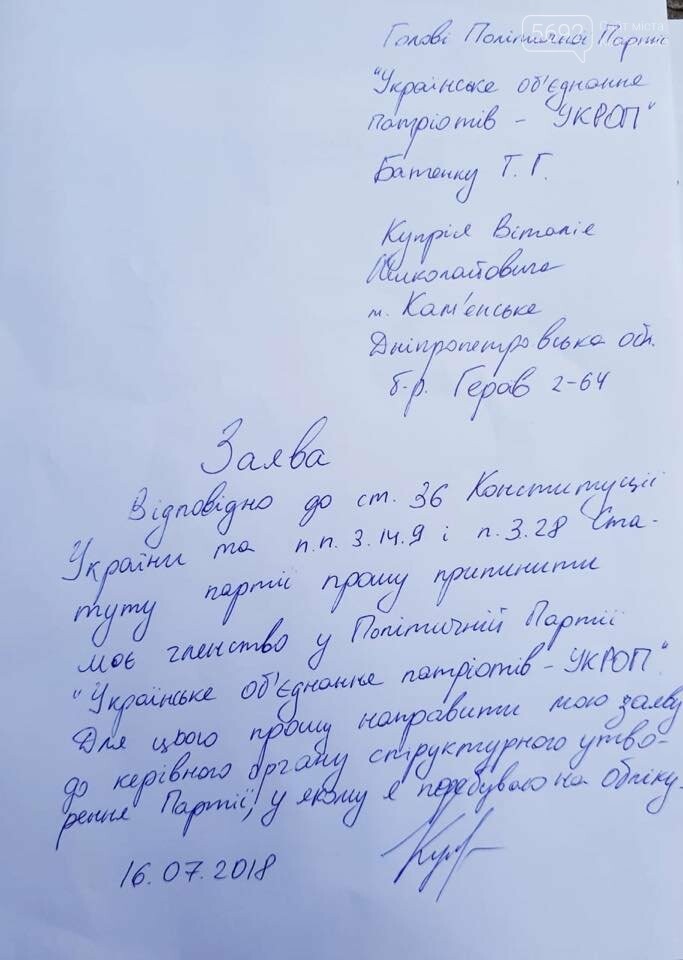 5692 Сайт міста
Голові Політичної Партії
"Українське об'єднання
патріотів - УКРОП"
Батенку Т. Г.
Купрія Віталія
Миколайовича
м. Кам'янське
Дніпропетровська обл.
б-р. Герав 2-64
Заява
Відповідно до ст. 36 Конституції
України та п.п. 3.14.9 і п. 3.28 Ста-
туту партії прошу припинити
моє членство у Політичній Партії
"Українське об'єднання патріотів - УКРОП".
Для цього прошу направити мою заяву
до керівного органу структурного утво-
рення Партії, у якому я перебуваю на обліку.
16.07.2018